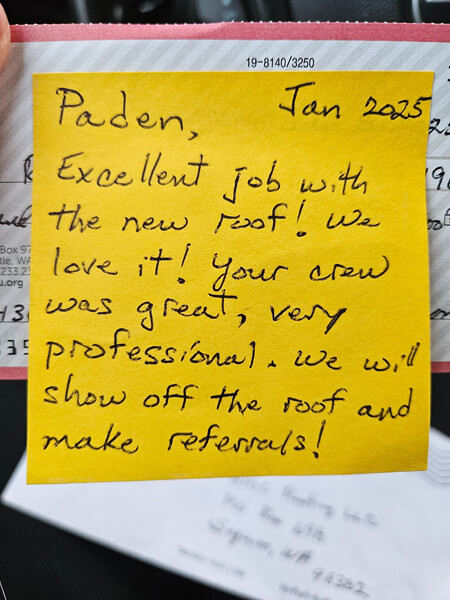 19-8140/3250
Paden, Jan 2025
Excellent job with
the new roof! We
love it! Your crew
was great, very
professional. We will
show off the roof and
make referrals!
Box 97
WA
233.23
u.org
WA
98362